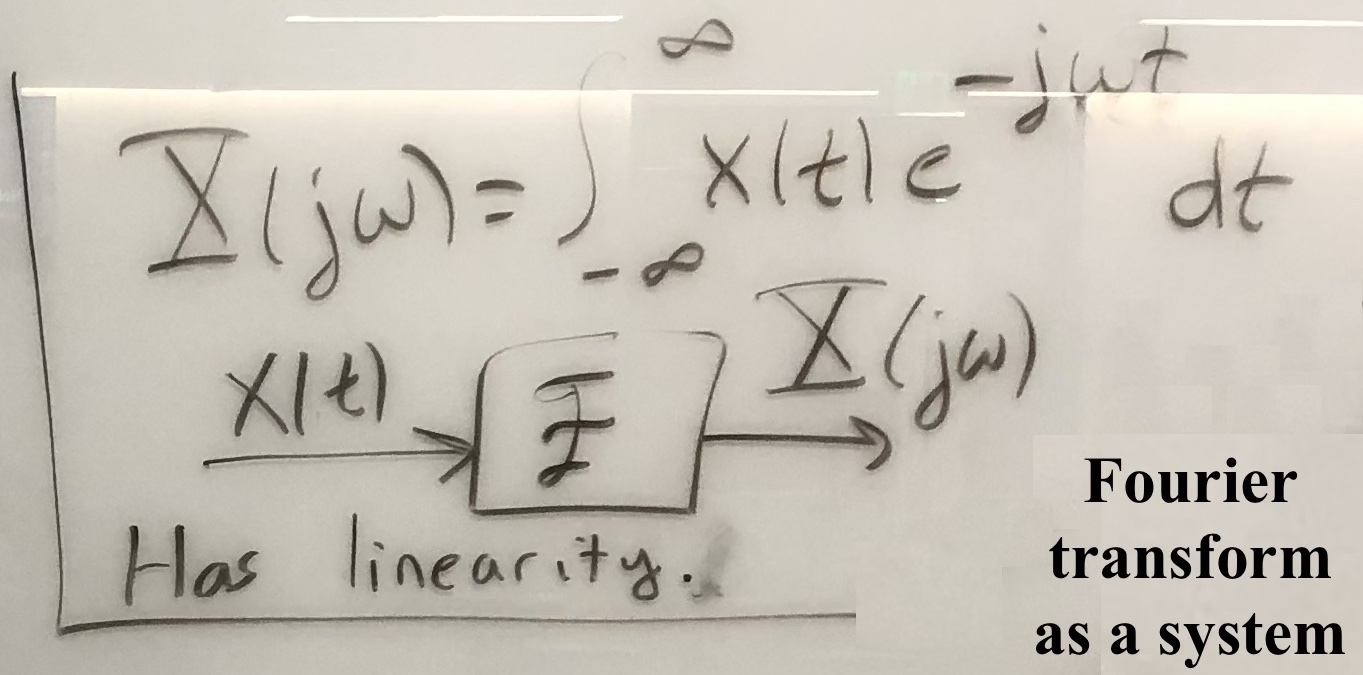 X(jω) = ∫_{-∞}^{∞} x(t) e^{-jωt} dt
x(t) → ℱ → X(jω)
Has linearity.
Fourier
transform
as a system